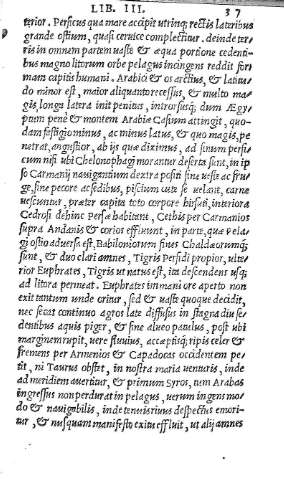 LIB. III. 37
terior. Persicus qua mare accipit utrinq; rectis lateribus
grande ostium, quasi ceruice complectitur. deinde ter-
ris in omnem partem uaste & æqua portione cedenti-
bus magno litorum orbe pelagus incingens reddit for
mam capitis humani. Arabici & os arctius, & latitu-
do minor est, maior aliquanto recessus, & multo ma-
gis longa latera init penitus, introrsusq; dum Ægy-
ptum penè & montem Arabiæ Casium attingit, quo-
dam fastigio minus, ac minus latus, & quo magis pe
netrat, angustior, ab ijs quæ diximus, ad sinum persi-
cum nisi ubi Chelonophagi morantur deserta sunt, in ip
so Carmanij nauigantium dextra positi sine ueste ac fru-
ge, sine pecore ac sedibus, piscium cute se uelant, carne
uescuntur, præter capita toto corpore hirsuti, interiora
Cedrosi dehinc Persæ habitant, Cethis per Carmanios
supra Andanis & corios effluunt, in parte, quæ Pela-
gi ostio aduersa est, Babiloniorum fines Chaldæorumq;
sunt, & duo clari amnes, Tigris Persidi propior, ulte-
rior Euphrates, Tigris ut natus est, ita descendens usq;
ad litora permeat. Euphrates immani ore aperto non
exit tantum unde oritur, sed & uaste quoque decidit,
nec secat continuo agros late diffusus in stagna diu se-
dentibus aquis piger, & sine alueo patulus, post ubi
marginem rupit, uere fluuius, acceptisq; ripis celer &
fremens per Armenios & Capadocas occidentem pe-
tit, ni Taurus obstet, in nostra maria uenturis, inde
ad meridiem auertitur, & primum Syros, tum Arabas
ingressus non perdurat in pelagus, uerum ingens mo-
do & nauigabilis, inde tenuis riuus despectus emori-
tur, & nusquam manifesto exitu effluit, ut alij amnes